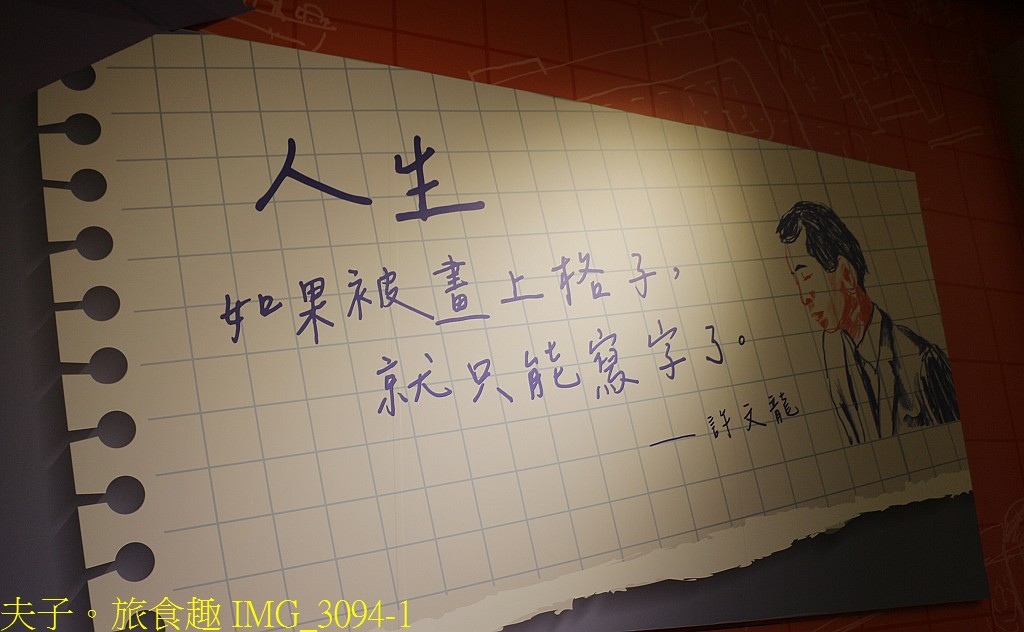 人生
如果被畫上格子，
就只能寫字了。
——許文龍
夫子。旅食趣 IMG_3094-1